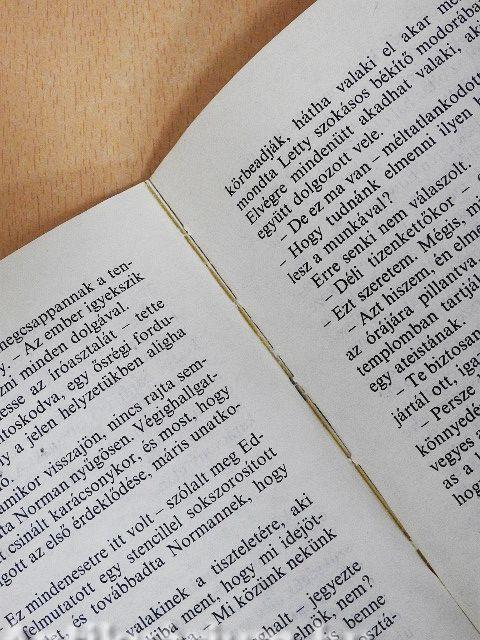 negcsappannak a ten-
y. – Az ember igyekszik
zni minden dolgával.
esse az íróasztalát – tette
ítoskodva, egy ösrég fordu-
y a jelen helyzetükben aligha
ó.
amikor visszajön, nincs rajta sem-
ta Norman nyűgösen. Végighallgat-
t csinált karácsonykor, és most, hogy
gott az első érdeklődése, máris unatko-
Ez mindenesetre itt volt – szólalt meg Ed-
elmutatott egy stencillel sokszorosított
let, és továbbadta Normannek, hogy
valakinek a tiszteletére, aki
ba ment, hogy mi idejöt-
– Mi közünk nekünk
ghalt – jegyezte
elnök, nem?
benne
körbeadják, hátha valaki el akar me
mondta Letty szokásos békítő modorába
Elvégre mindenütt akadhat valaki, ak
együtt dolgozott vele.
– De ez ma van – méltatlankodott
– Hogy tudnánk elmenni ilyen h
lesz a munkával?
Erre senki nem válaszolt.
– Déli tizenkettőkor –
– Ezt szeretem. Mégis, mi
– Azt hiszem, én elme
az órájára pillantva
templomban tartjá
egy ateistának.
– Te biztosan
jártál ott, igaz
– Persze
könnyedé
vegyes a
as a l
hog